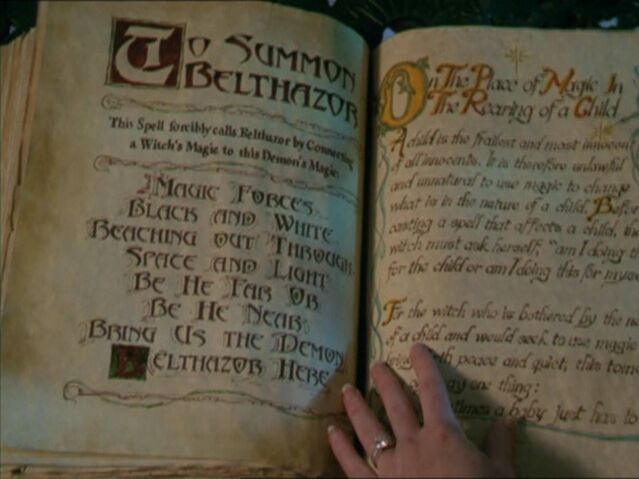 To Summon
Belthazor
This Spell forcibly calls Belthazor by Connecting
a Witch's Magic to this Demon's Magic:
Magic Forces
Black and White
Reaching out Through
Space and Light
Be He Far Or
Be He Near
Bring Us the Demon
Belthazor Here
On The Place of Magic In
The Rearing of a Child
A child is the frailest and most innocent
of all innocents. It is therefore unlawful
and unnatural to use magic to change
what is in the nature of a child. Before
casting a spell that affects a child, the
witch must ask herself, "am I doing this
for the child or am I doing this for
For the witch who is bothered by the
of a child and would seek to use magic
peace and quiet, this
one thing:
a baby just has to